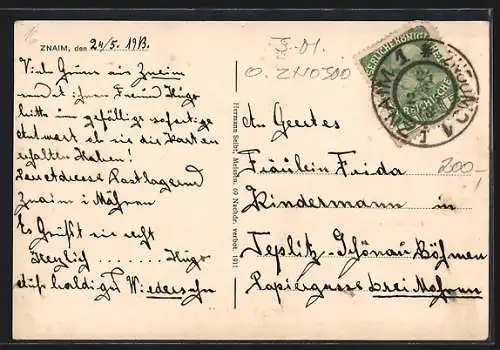 ZNAIM, den 24/5. 1913.
Viele Grüsse aus Znaim
sendet ihnen Freund Hugo
bitte um gefällige sofortige
Antwort ob sie die Karten
erhalten haben!
Postlagernd
Znaim in Mähren
Es Grüßt sie recht
Herzlich ........ Hugo
Auf baldiges Wiedersehn
Hermann Seibt, Meissen. 69 Nachdr. verbot. 1911
Z.01.
O. ZNO300
200-
ZNAIM 1
ZNOJMO 1
An Geertes
Fräulein Frida
Kindermann in
Teplitz-Schönau Böhmen
Papiergasse bei Mohann